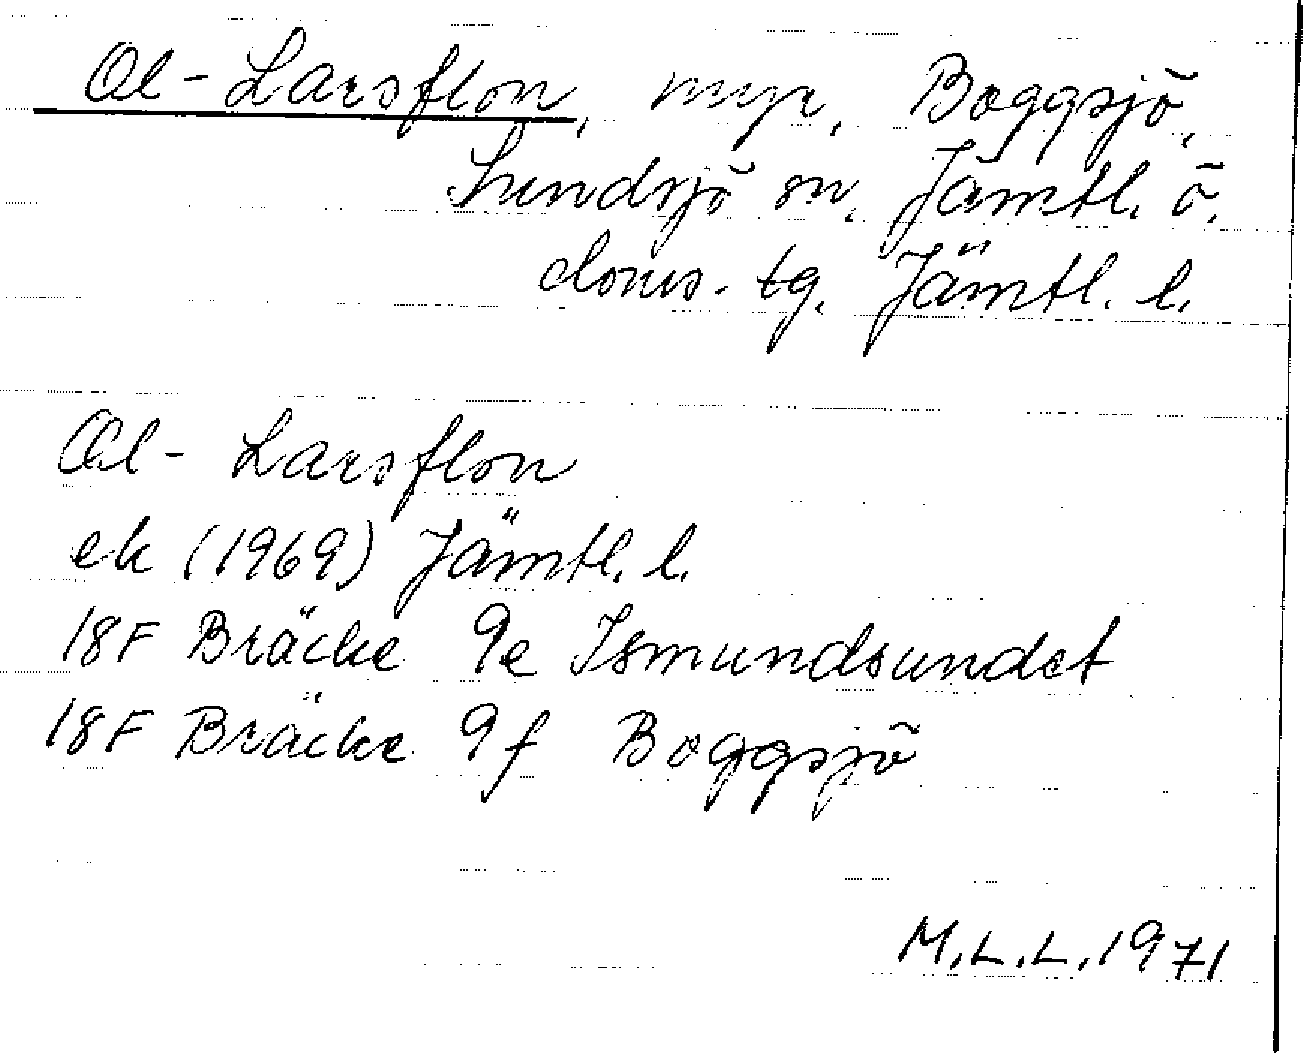 Ol-Larsflon, myr, Boggsjö,
Sundsjö sn, Jämtl. ö.
doms. tg, Jämtl. l.
Ol-Larsflon
ek (1969) Jämtl. l.
18F Bräcke 9e Ismundsundet
18F Bräcke 9f Boggsjö
M.L.L. 1971